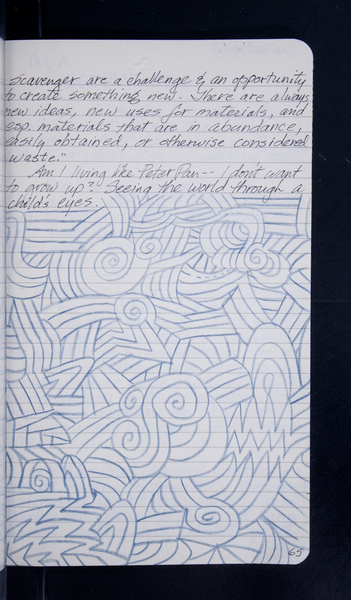 Scavenger are a challenge & an opportunity
to create something new. There are always
new ideas, new uses for materials, and
esp. materials that are in abundance,
easily obtained, or otherwise considered
waste."
Am I living like Peter Pan-- I don't want
to grow up?! Seeing the world through a
child's eyes.
65